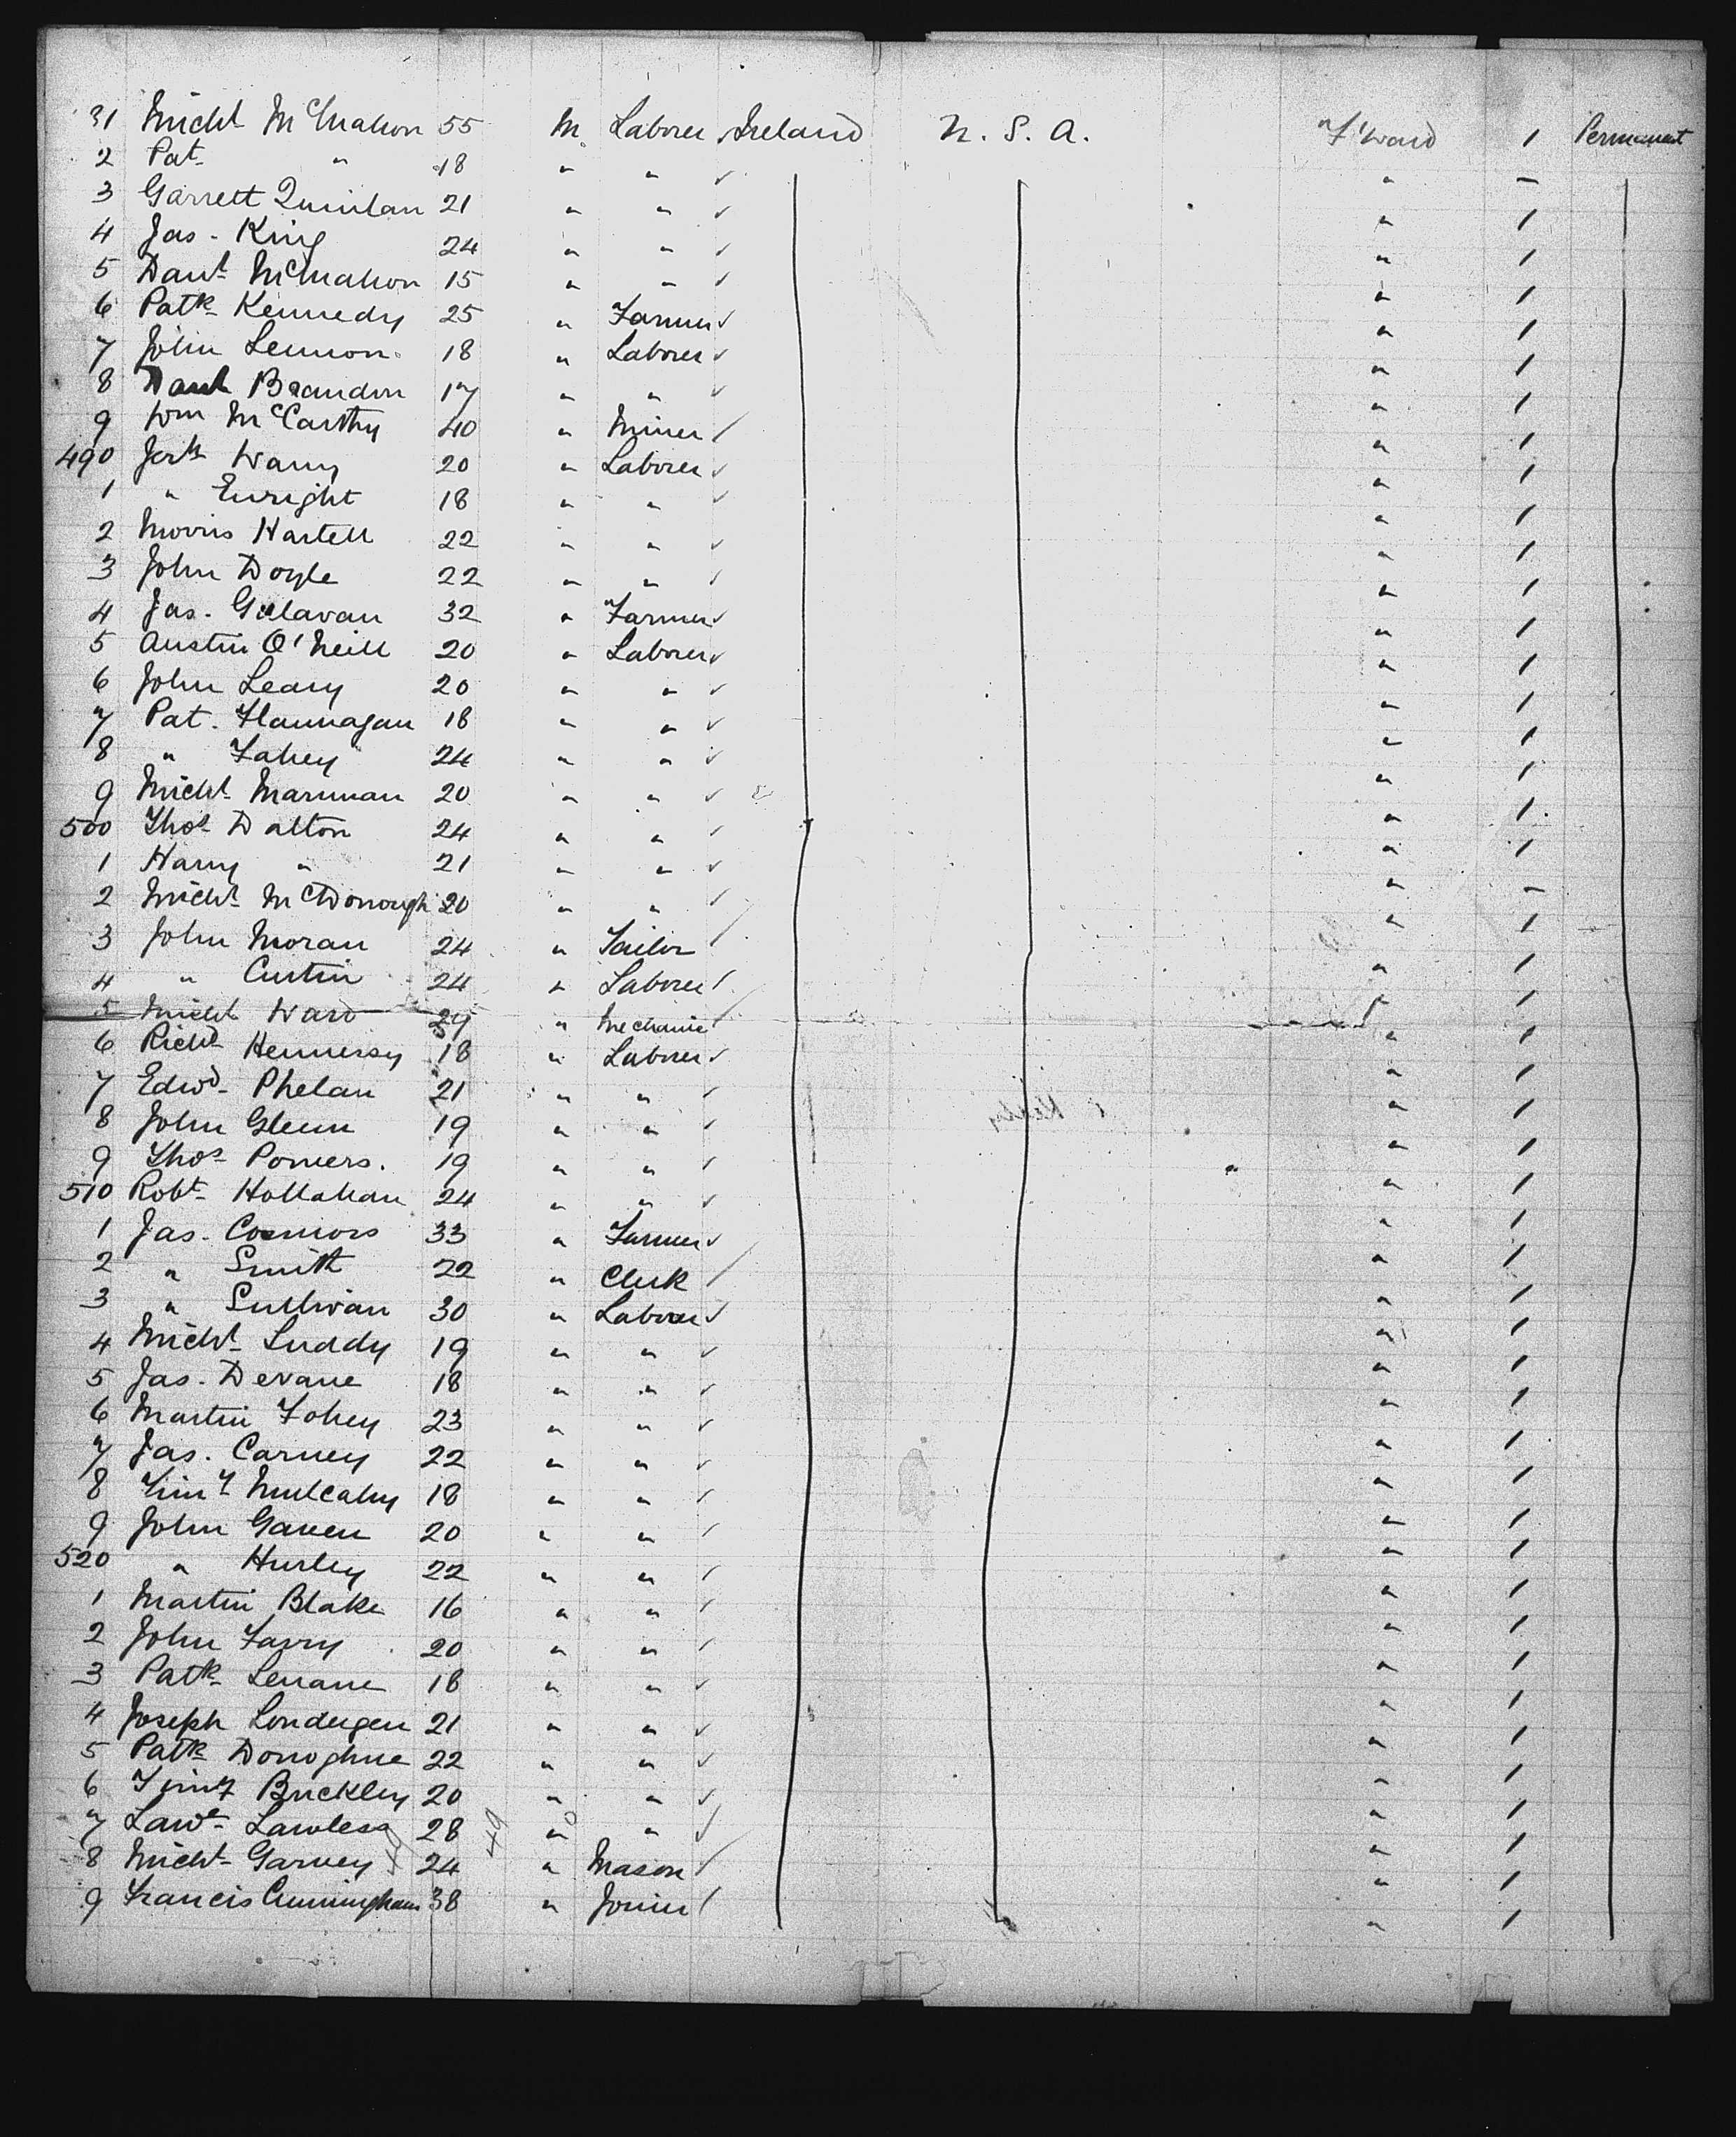 81 Michl McMahon 55 M Laborer Ireland U. S. A. F'ward 1 Permanent
2 Pat " 18 " " " -
3 Garrett Quinlan 21 " " " 1
4 Jas. King 24 " " " 1
5 Danl McMahon 15 " " " 1
6 Patk Kennedy 25 " Farmer " 1
7 John Lennon 18 " Laborer " 1
8 Danl Brandon 17 " " " 1
9 Wm McCarthy 40 " Miner " 1
490 Jerh Warry 20 " Laborer " 1
1 " Enright 18 " " " 1
2 Morris Hartell 22 " " " 1
3 John Doyle 22 " " " 1
4 Jas. Gulavan 32 " Farmer " 1
5 Austin O'Neill 20 " Laborer " 1
6 John Leary 20 " " " 1
7 Pat. Flannagan 18 " " " 1
8 " Fahey 24 " " " 1
9 Michl Marunan 20 " " " 1
500 Thos Dalton 24 " " " 1
1 Harry " 21 " " " -
2 Michl McDonough 20 " " " 1
3 John Moran 24 " Tailor " 1
4 " Curtin 24 " Laborer " 1
5 Michl Ward 29 " Mechanic " 1
6 Richd Hennessy 18 " Laborer " 1
7 Edwd Phelan 21 " " " 1
8 John Glenn 19 " " " 1
9 Thos Powers. 19 " " " 1
510 Robt Hollahan 24 " " " 1
1 Jas. Connors 33 " Farmer " 1
2 " Smith 22 " Clerk " 1
3 " Sullivan 30 " Laborer " 1
4 Michl Luddy 19 " " " 1
5 Jas. Devane 18 " " " 1
6 Martin Fohey 23 " " " 1
7 Jas. Carney 22 " " " 1
8 Timy Mulcahy 18 " " " 1
9 John Gaven 20 " " " 1
520 " Hurley 22 " " " 1
1 Martin Blake 16 " " " 1
2 John Farry 20 " " " 1
3 Patk Lenane 18 " " " 1
4 Joseph Londergen 21 " " " 1
5 Patk Donoghue 22 " " " 1
6 Timy Buckley 20 " " " 1
7 Lawe Lawless 28 49 " " " 1
8 Michl Garvey 24 " Mason " 1
9 Francis Cunningham 38 " Joiner " 1